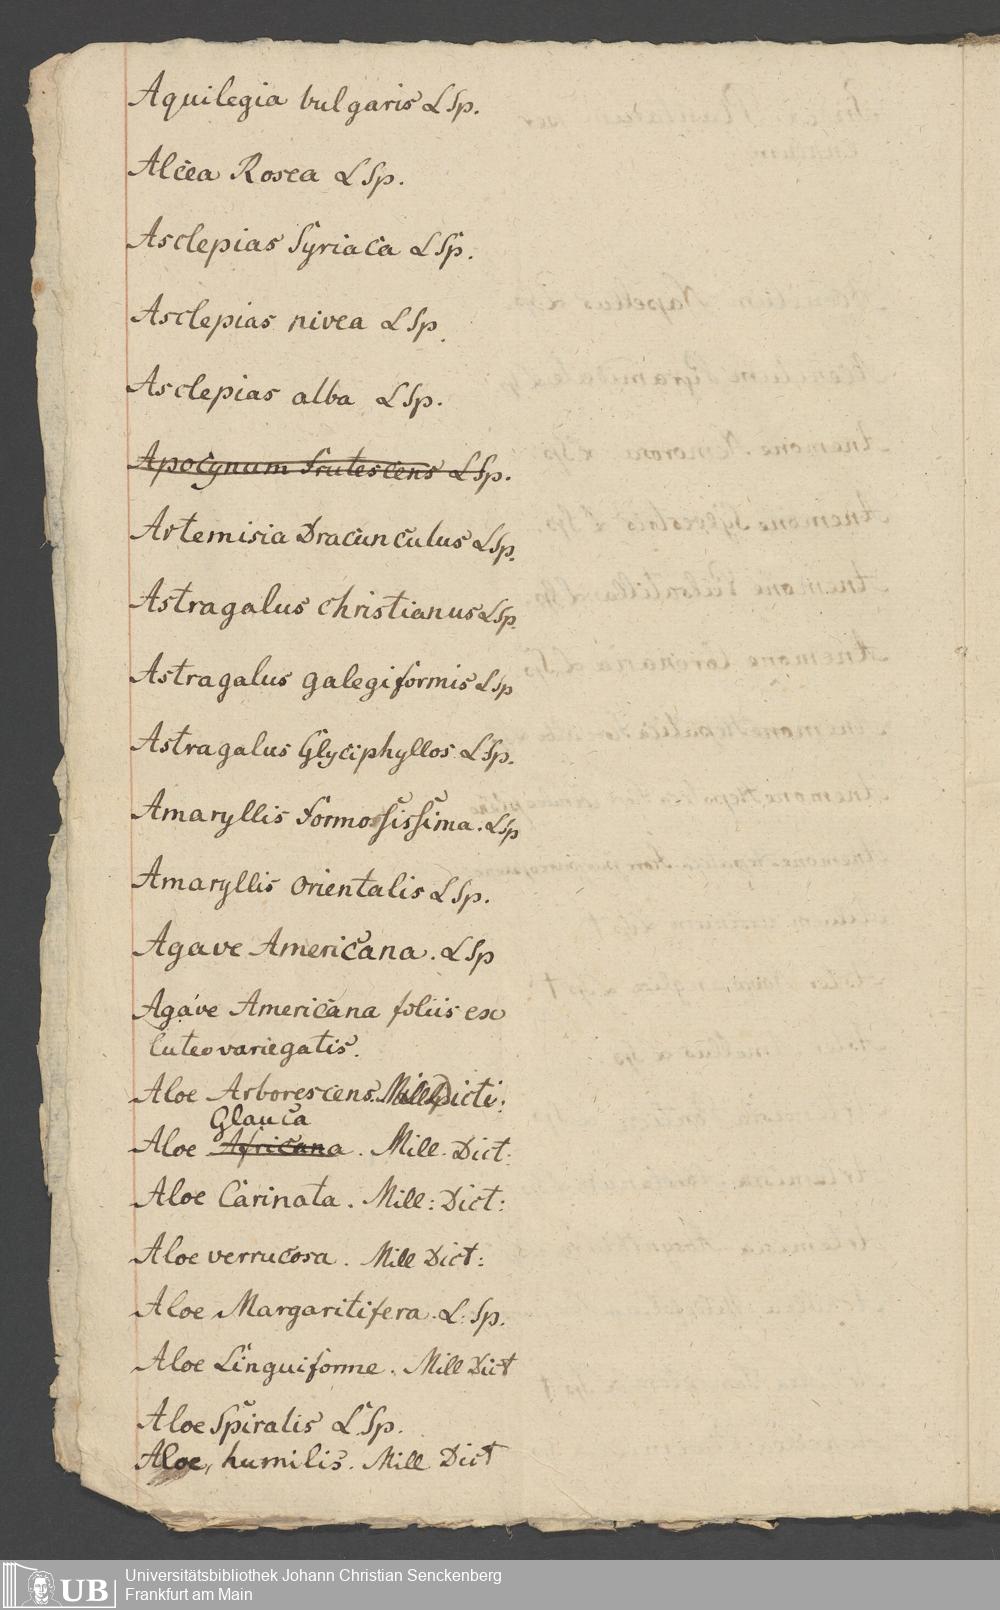 Aquilegia vulgaris L Sp.
Alcea Rosea L Sp.
Asclepias Syriaca L Sp.
Asclepias nivea L Sp.
Asclepias alba L Sp.
Apocynum frutescens L Sp.
Artemisia Dracunculus L Sp.
Astragalus christianus L Sp.
Astragalus galegiformis L Sp
Astragalus Glyciphyllos L Sp.
Amaryllis formosissima. L Sp
Amaryllis orientalis L Sp.
Agave Americana. L Sp
Agave Americana foliis ex
luteo variegatis.
Aloe Arborescens. Mill Dicti:
Glauca
Aloe Africana. Mill. Dict:
Aloe Carinata. Mill: Dict:
Aloe verrucosa. Mill Dict:
Aloe Margaritifera. L: Sp.
Aloe Linguiforme. Mill Dict
Aloe Spiralis L. Sp.
Aloe, humilis. Mill Dict
UB
Universitätsbibliothek Johann Christian Senckenberg
Frankfurt am Main